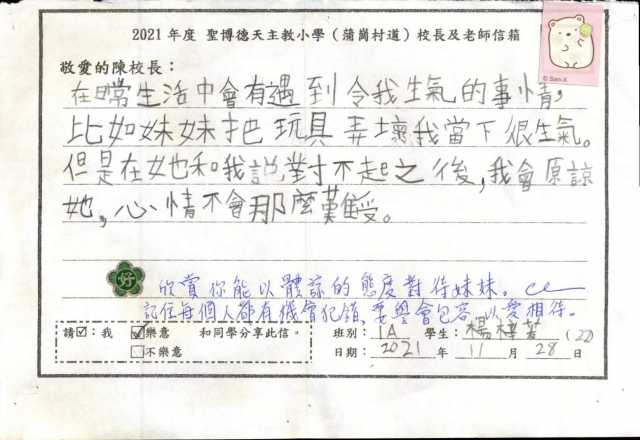 2021 年度 聖博德天主教小學（蒲崗村道）校長及老師信箱
© San-X
敬愛的陳校長：
在日常生活中會有遇到令我生氣的事情，
比如妹妹把玩具弄壞我當下很生氣。
但是在她和我說對不起之後，我會原諒
她，心情不會那麼難受。
好
欣賞你能以體諒的態度對待妹妹。
記住每個人都有機會犯錯，要學會包容，以愛相待。
請☑：我 ☑樂意 和同學分享此信。 班別： 1A 學生： 楊 (22)
□不樂意 日期： 2021 年 11 月 28 日